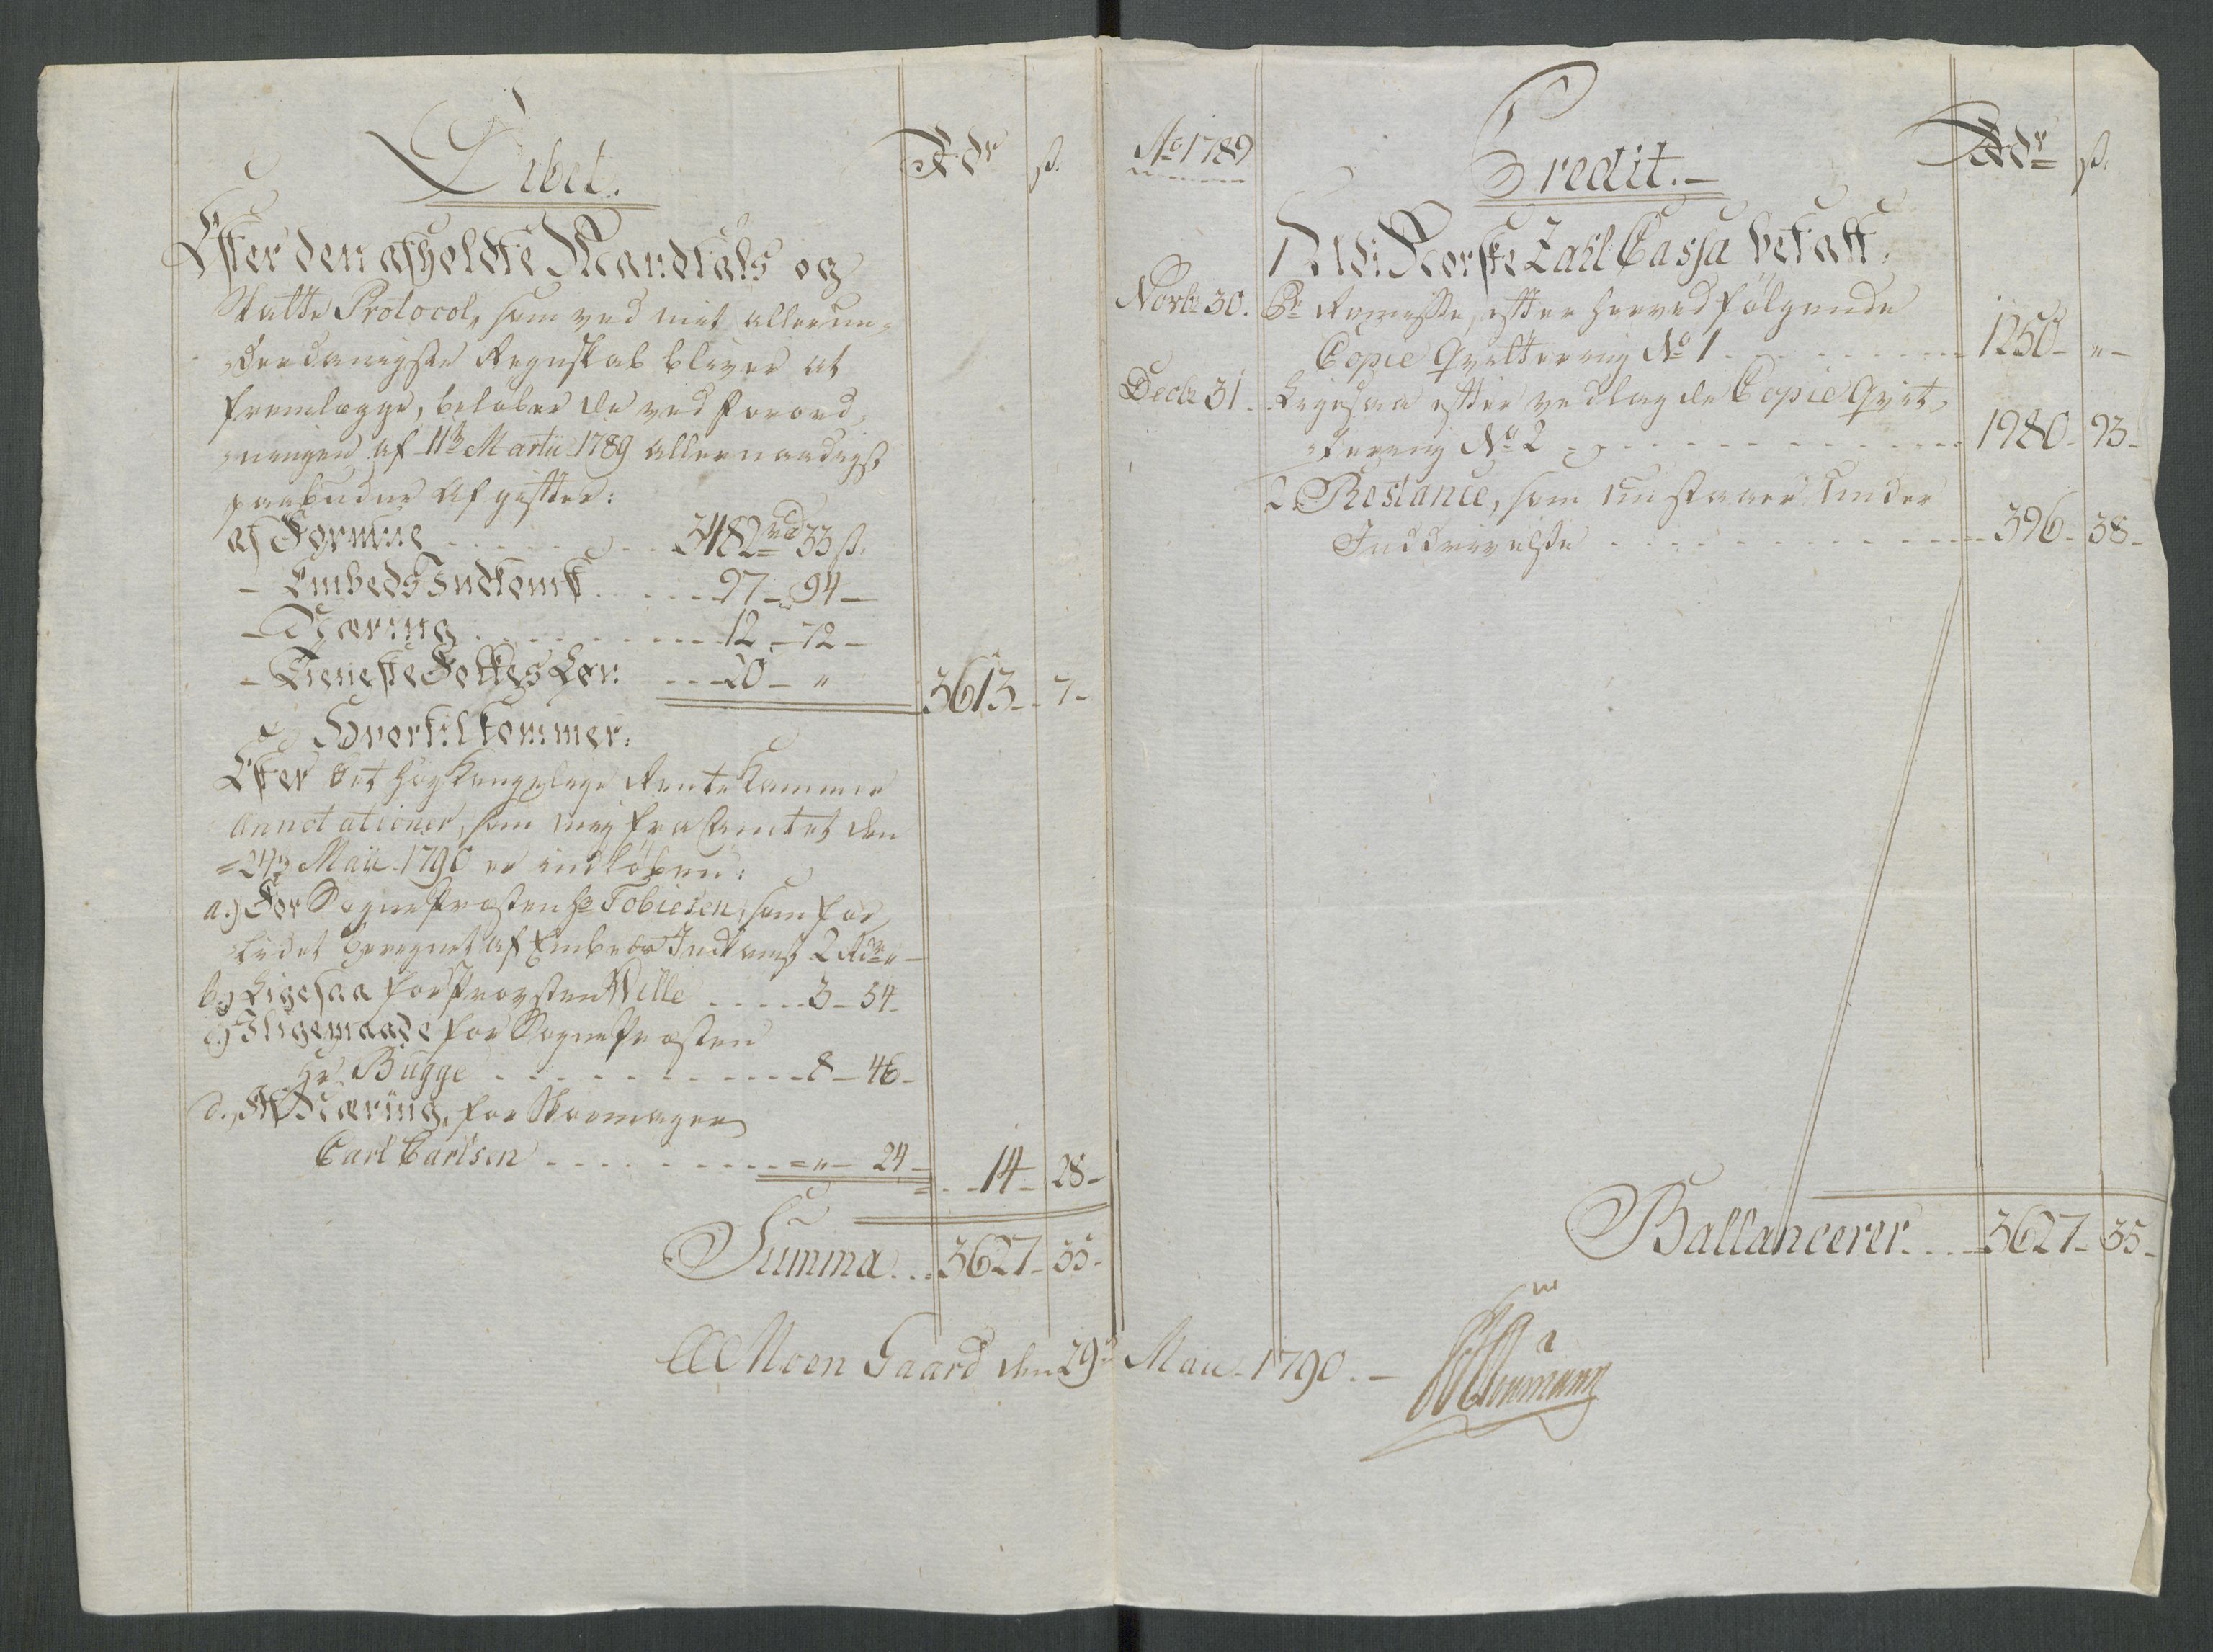 Debet.
Rdr ß.
Efter den afholdte Mandtals og
Skatte Protocol, som ved mit allerun-
derdanigste Regnskab bliver at
fremlægge, beløber de ved Forord-
ningen af 11te Martii 1789 allernaadigst
paabudne Afgifter:
a) Formue - - - - 3482 rd 33 ß.
- Embeds Indkomst - - - 97 - 94 -
- Næring - - - - 12 - 72 -
- Tieneste Folkes Løn - - - 20 - "
3613 - 7 -
Hvortil kommer:
Efter Det Høy Kongelige Rente Kammer
Annotationer, som mig fra Amtet den
24de Maii 1790 er indløben:
a.) For Sognepræsten Hr Tobiesen, som for
lidet beregnet af Embeds Indkomst 2 Rdr " -
b.) Ligesaa for Provsten Wille - - - 3 - 54 -
c.) Iligemaade for Sognepræsten
Hr. Bugge - - - - 8 - 46 -
d., Af Næring, for Skomager
Carl Carlsen - - - - " - 24 -
14 - 28 -
Summa - - 3627 - 35 -
Ao 1789
Credit. -
Rdr ß.
1. Udi Norske Zahl Cassa betalt:
Novbr 30. Pr Remisse, efter hervedfølgende
Copie Qvittering No 1 - - - - 1250 - " -
Decbr 31. Ligesaa efter vedlagde Copie Qvit-
tering No 2 - - - - 1980 - 93 -
2. Restance, som nu staaer under
Inddrivelse - - - - 396 - 38 -
Ballancerer - - - 3627 - 35 -
Moen Gaard den 29de Maii 1790. -